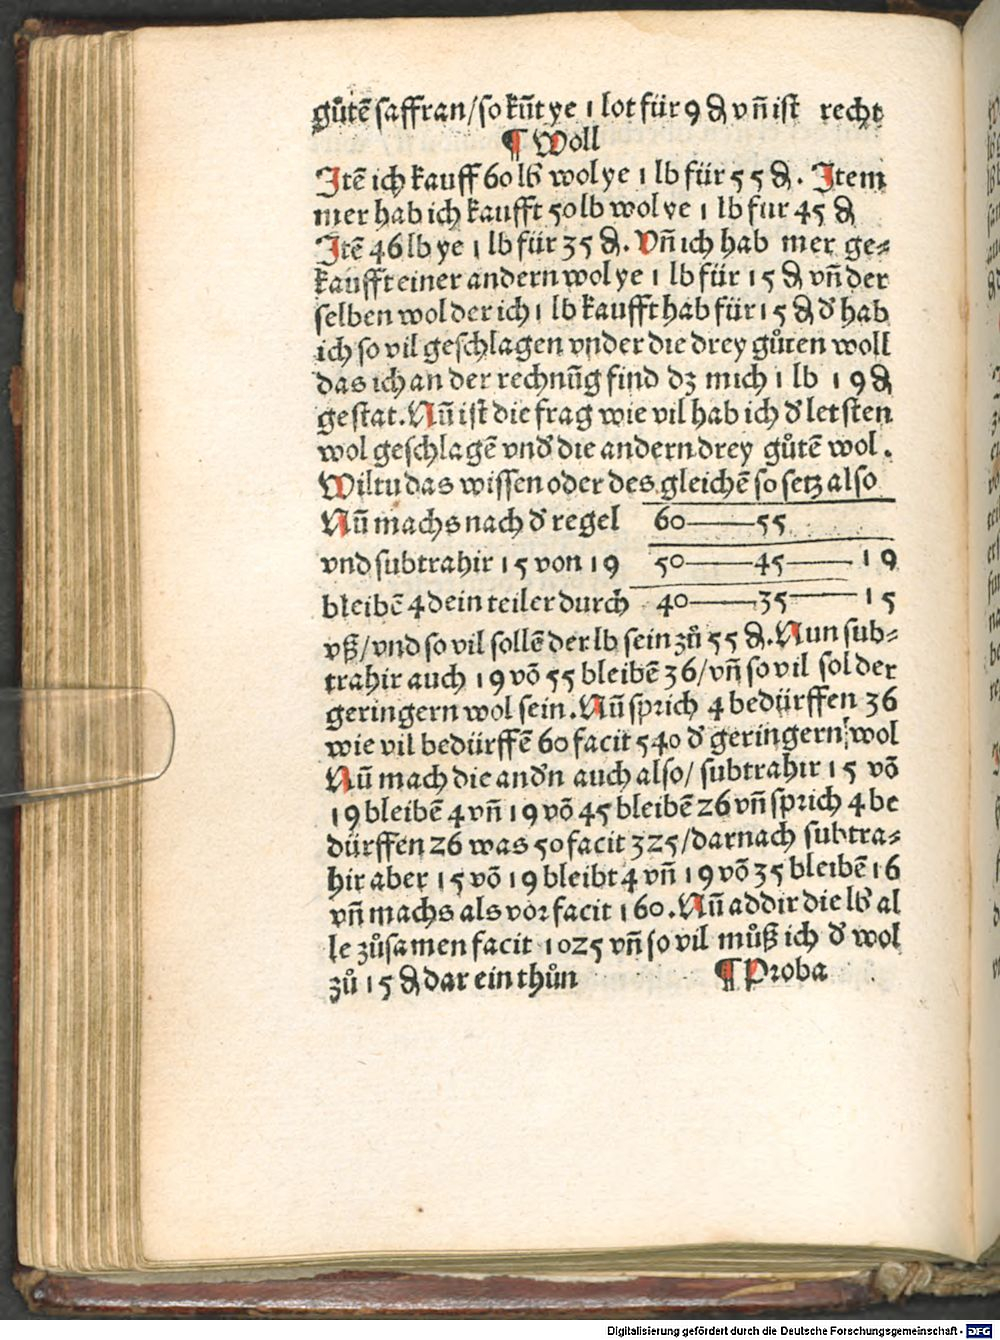 gůtē saffran/so kūt ye 1 lot für 9 ₰ vn̄ ist recht
¶ Woll
Itē ich kauff 60 lb wol ye 1 lb für 55 ₰. Item
mer hab ich kaufft 50 lb wol ye 1 lb fur 45 ₰
Itē 46 lb ye 1 lb für 35 ₰. Vn̄ ich hab mer ge⸗
kaufft einer andern wol ye 1 lb für 15 ₰ vn̄ der
selben wol der ich 1 lb kaufft hab für 15 ₰ d' hab
ich so vil geschlagen vnder die drey gůten woll
das ich an der rechnūg find dz mich 1 lb 19 ₰
gestat. Nū ist die frag wie vil hab ich d' letsten
wol geschlagē vnd' die andern drey gůtē wol.
Wiltu das wissen oder des gleichē so setz also
Nū machs nach d' regel 60——55
vnd subtrahir 15 von 19 50——45——19
bleibē 4 dein teiler durch 40——35——15
vß/vnd so vil sollē der lb sein zů 55 ₰. Nun sub⸗
trahir auch 19 vō 55 bleibē 36/vn̄ so vil sol der
geringern wol sein. Nū sprich 4 bedürffen 36
wie vil bedürffē 60 facit 540 d' geringern wol
Nū mach die and'n auch also/ subtrahir 15 vō
19 bleibē 4 vn̄ 19 vō 45 bleibē 26 vn̄ sprich 4 be
dürffen 26 was 50 facit 325/darnach subtra⸗
hir aber 15 vō 19 bleibt 4 vn̄ 19 vō 35 bleibē 16
vn̄ machs als vor facit 160. Nū addir die lb al
le zůsamen facit 1025 vn̄ so vil můß ich d' wol
zů 15 ₰ dar ein thůn ¶ Proba
Digitalisierung gefördert durch die Deutsche Forschungsgemeinschaft - DFG